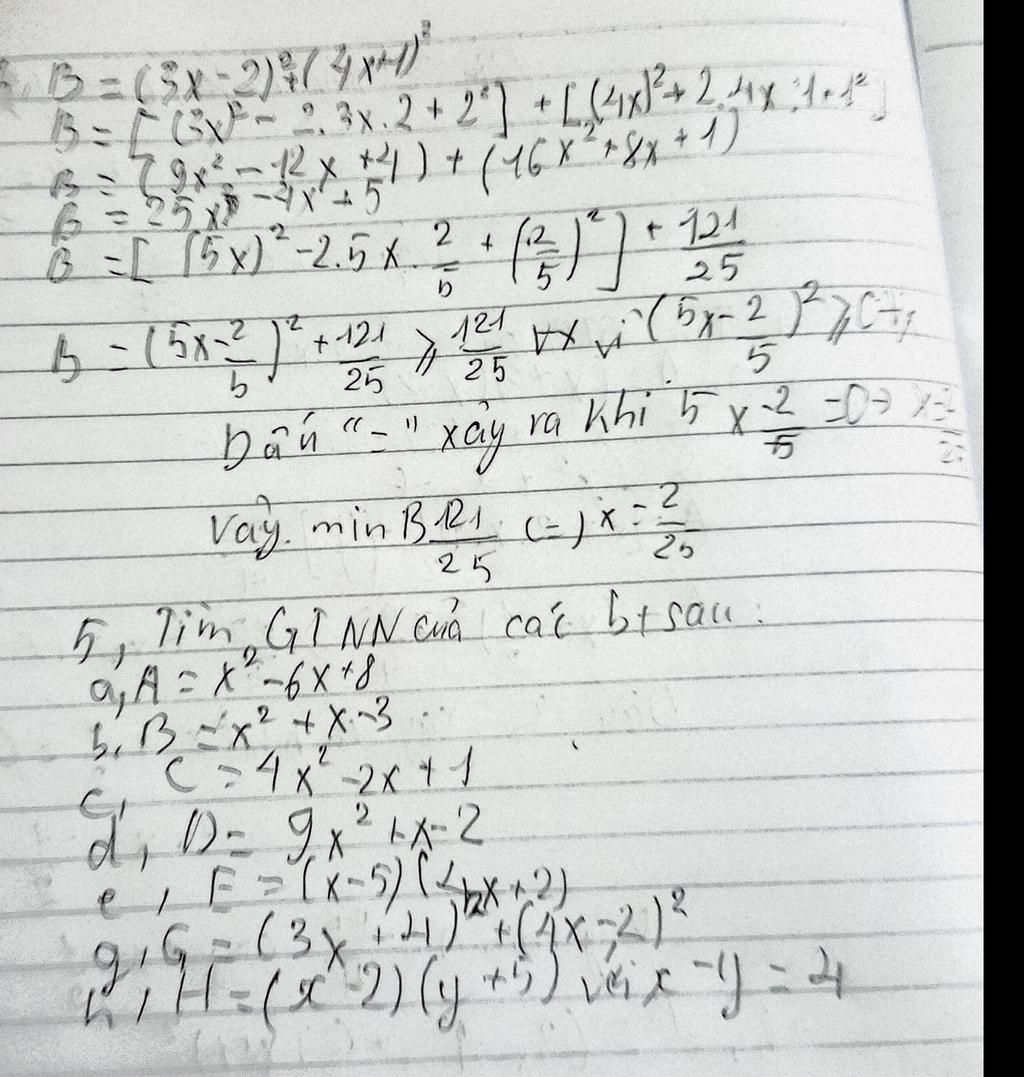 B = (3x - 2)² + (4x+1)²
B = [ (3x)² - 2.3x.2 + 2² ] + [(4x)² + 2.4x.1+1²]
B = (9x² - 12x + 4) + (16x² + 8x + 1)
B = 25x² - 4x + 5
B = [ (5x)² - 2.5x. 2/5 + (2/5)² ] + 121/25
B = (5x - 2/5)² + 121/25 ⩾ 121/25 ∀x vì (5x - 2/5)² ⩾
Dấu "=" xảy ra khi 5x - 2/5 = 0 →
Vậy. min B 121/25 (=) x = 2/25
5, Tìm GTNN của các bt sau:
a, A = x² - 6x + 8
b, B = x² + x - 3
c, C = 4x² - 2x + 1
d, D = 9x² + x - 2
e, E = (x - 5)( x + 2)
g, G = (3x + 4)² + (4x - 2)²
h, H = (x - 2)(y + 5) với x - y = 4